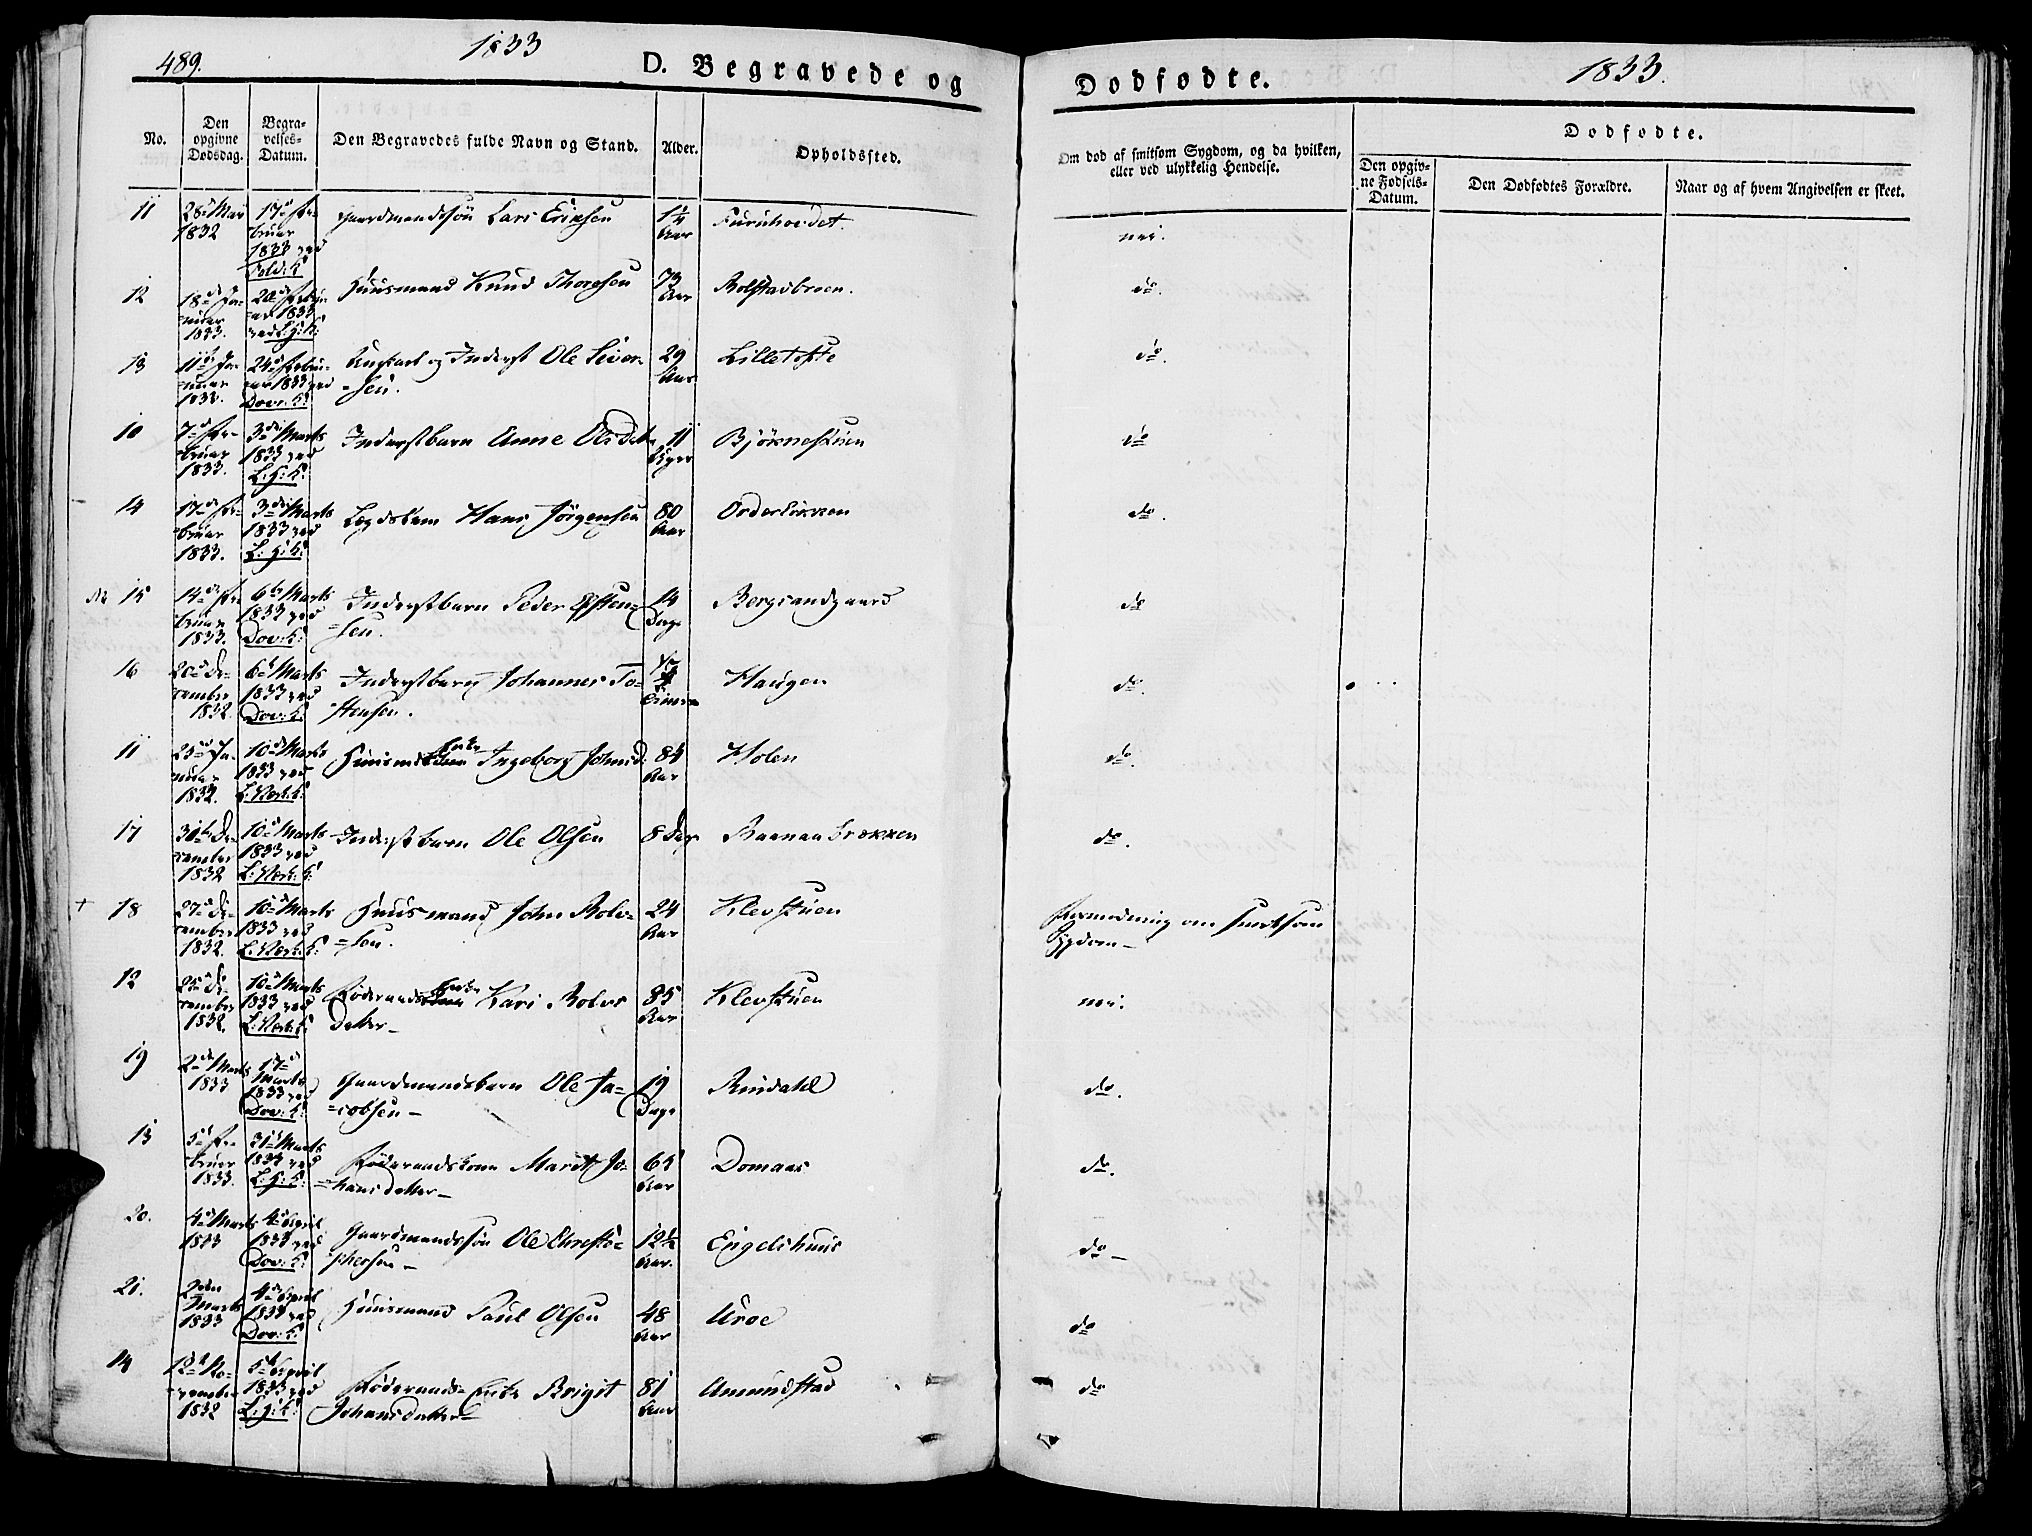 489. 1833 D. Begravede og Dødfødte. 1833.
No. Den opgivne Dødsdag. Begravelses-Datum. Den Begravedes fulde Navn og Stand. Alder. Opholdssted. Om død af smitsom Sygdom, og da hvilken, eller ved ulykkelig Hendelse. Dødfødte.
Den opgivne Fødsels-Datum. Den Dødfødtes Forældre. Naar og af hvem Angivelsen er skeet.
11 28de Mai 1832 17de Februar 1833 ved Gaardmandssøn Lars Ericksen 1¼ Aar nei.
12 18de Januar 1833. 20de Februar 1833 ved L:H:K: Huusmand Knud Thoresen 73 Aar Rolfstadbroen. do.
13 11te Januar 1833. 24de Februar 1833 ved Dov:K: Ungkarl og Inderst Ole Siver-
=sen. 29 Aar Lilletofte do.
10 7de Februar 1833. 3die Marts 1833 ved L:H:K: Inderstbarn Anne Olsdet 11 Uger Bjørnestuen do
14 17de Februar 1833. 3die Marts 1833 ved L:H:K: Lægdslem Hans Jörgensen 80 Aar do.
15 14de Februar 1833. 6te Marts 1833 ved Dov:K: Inderstbarn Peder
=sen. 14 Dage Bergsandgaard do
16 20de December 1832. 6te Marts 1833 ved Dov:K: Inderstbarn Johannes To-
stensen. Haugen do.
11 25de Januar 10de Marts 1833 ved L:Næsb:K: Huusmands Enke Ingeborg Johnsd: 84 Aar Holen do.
17 31te December 1832 10de Marts 1833 ved Inderstbarn Ole Olsen 8 Dage do.
+ 18 27de December 1832. 10de Marts 1833 ved Huusmand John Rolv-
=sen. 24 Aar Klevstuen Formodning om smitsom
Sygdom—
12 25de December 1832. 10de Marts 1833 ved Föderaads Enke Kari Rolvs
Datter— 85 Aar Klevstuen nei.
19 2den Marts 1833 17de Marts 1833 ved Dov:K: Gaardmandsbarn Ole Ja-
=cobsen— 19 Dage Rindahl do.
13 5te Februar 1833. 31te Marts 1833 ved L:H:K: Föderaadskone Marit Jo-
=hansdatter— 65 Aar Domaas do.
20. 4de Marts 1833 4de April 1833 ved Dov:K: Gaardmandssøn Ole Christo-
phersen— 12½ Aar. Engelshuus do—
21. 2den Marts 1833 4de April 1833 ved Dov:K: Huusmand Paul Olsen 48 Aar Uroe do
14 12te November 1832 5te April 1833 ved L:H:K: Föderaads=Enke Brigit
Johansdatter— 81 Aar Amundstad do